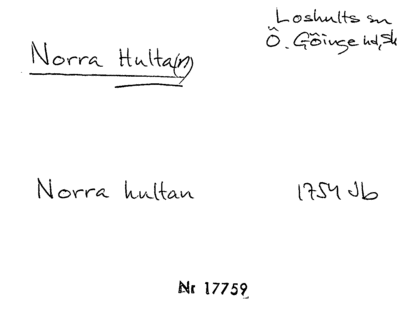 Loshults sn
Norra Hulta(n)
Ö. Göinge hd, Sk
Norra hultan 1754 Jb
Nr 17759